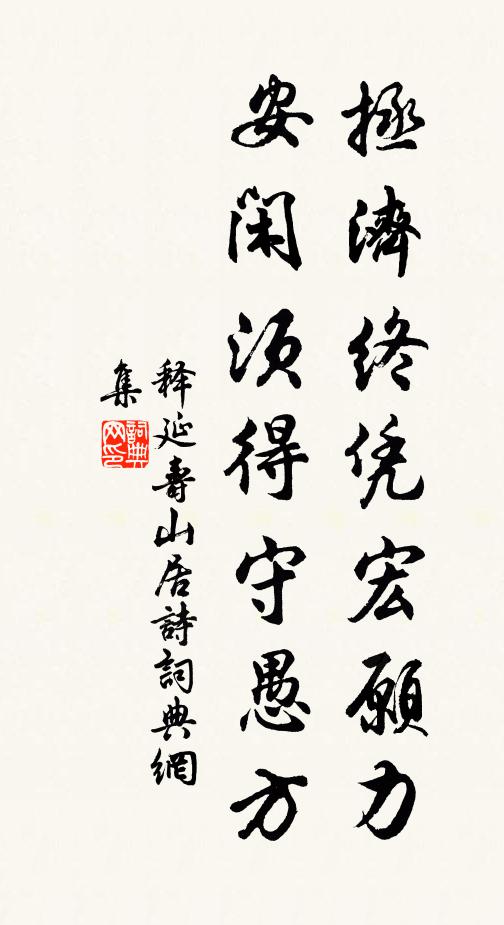 拯濟終凭宏願力
安閑須得守愚方
释延壽山居詩詞典網
集
詞典网印